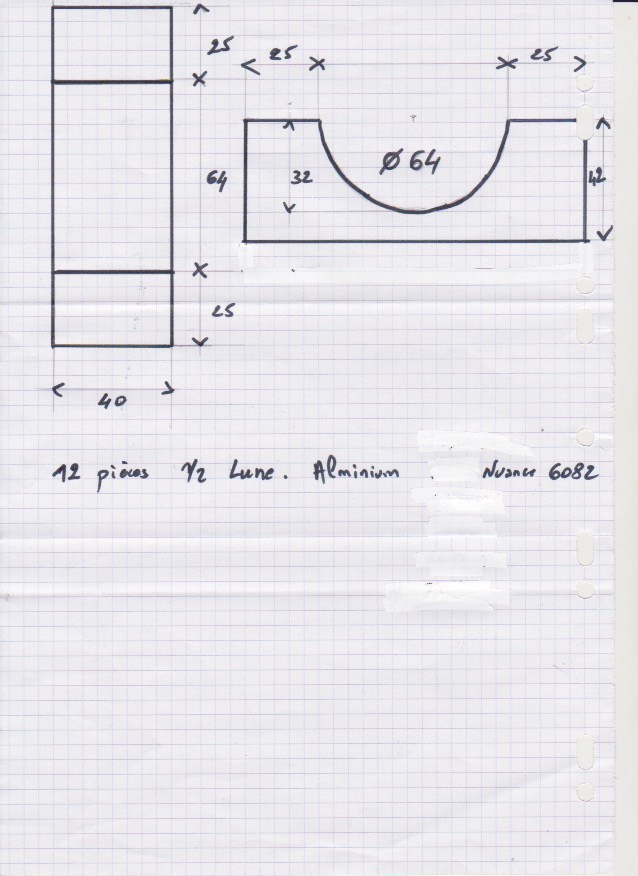 25
25
25
64
32
Ø 64
42
25
40
12 pièces 1/2 Lune. Alminium . Nuance 6082